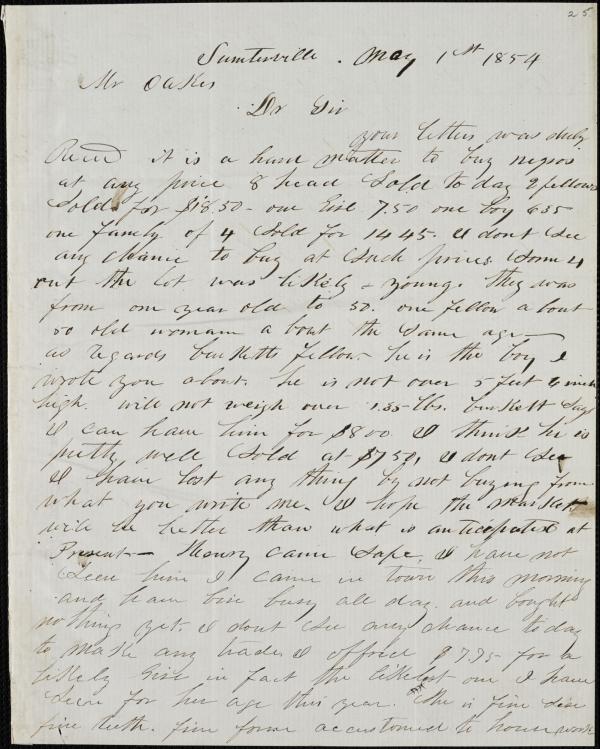 25
Sumterville. May 1st 1854
Mr Oakes
Dr Sir
your letter was duly
Recd it is a hard matter to buy negros
at any price 8 head Sold to day 2 fellows
Sold for $18.50- one Girl 7.50 one boy 635
one family of 4 Sold for 1445. I dont See
any chance to buy at Such prices Some 4
out the lot was likely & young. they was
from one year old to 50. one fellow about
50 old woman a bout the Same age-
as regards burketts fellow- he is the boy I
wrote you about. he is not over 5 feet 4 inch
high. will not weigh over 135 lbs. burkett Says
I can have him for $800 I think he is
pretty well Sold at $750, I dont See
I have lost any thing by not buying from
what you write me. I hope the market
will be better than what is anticipated at
Present- Henry came Safe, I have not
Seen him I came in town this morning
and have bin busy all day. and bought
nothing yet. I dont See any chance to day
to make any trades I offerd $775 for a
likely Girl in fact the likelest one I have
Seen for her age this year. She is fine Size
fine teeth. fine form accustomed to house work